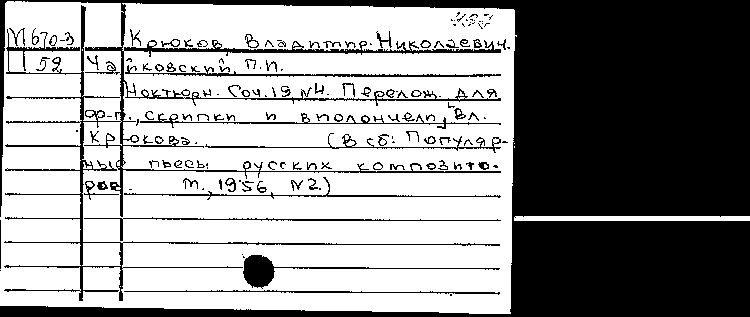 М670-3 Крюков, Владимир Николаевич.
П 52 Чайковский, П.И.
Ноктюрн. Соч.19, №4. Перелож. для
ф-п., скрипки и виолончели, Вл.
Крюкова. (В сб: Популяр-
ные пьесы русских композито-
ров. М., 1956, №2.)